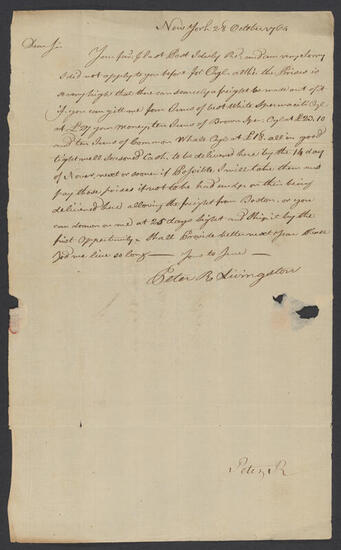 New York 28 October 1764
Dear Sir
Your fav. p last Post I duly Rec. and am very sorry
I did not apply to you before for Oyl altho the Prices is
so very high that there can scarcely a freight be made out of it
if you can gitt me four Tuns of best White Spermaceti Oyl
at £27 your Money, ten Tuns of Brown Oyl at £23.10
and ten Tuns of Common Whale Oyl at £18. all in good
tight well Seasoned Cask, to be delivered here by the 14 day
of Novr. next or sooner if Possible I will take them and
pay those prices if not to be had on their being
delivered here allowing the freight from Boston. or you
can draw on me at 25 days Sight and Ship it by the
first Opportunity. I Shall Provide better next year
God we live so long — Yours to Serve —
Peter R Livingston
Peter R